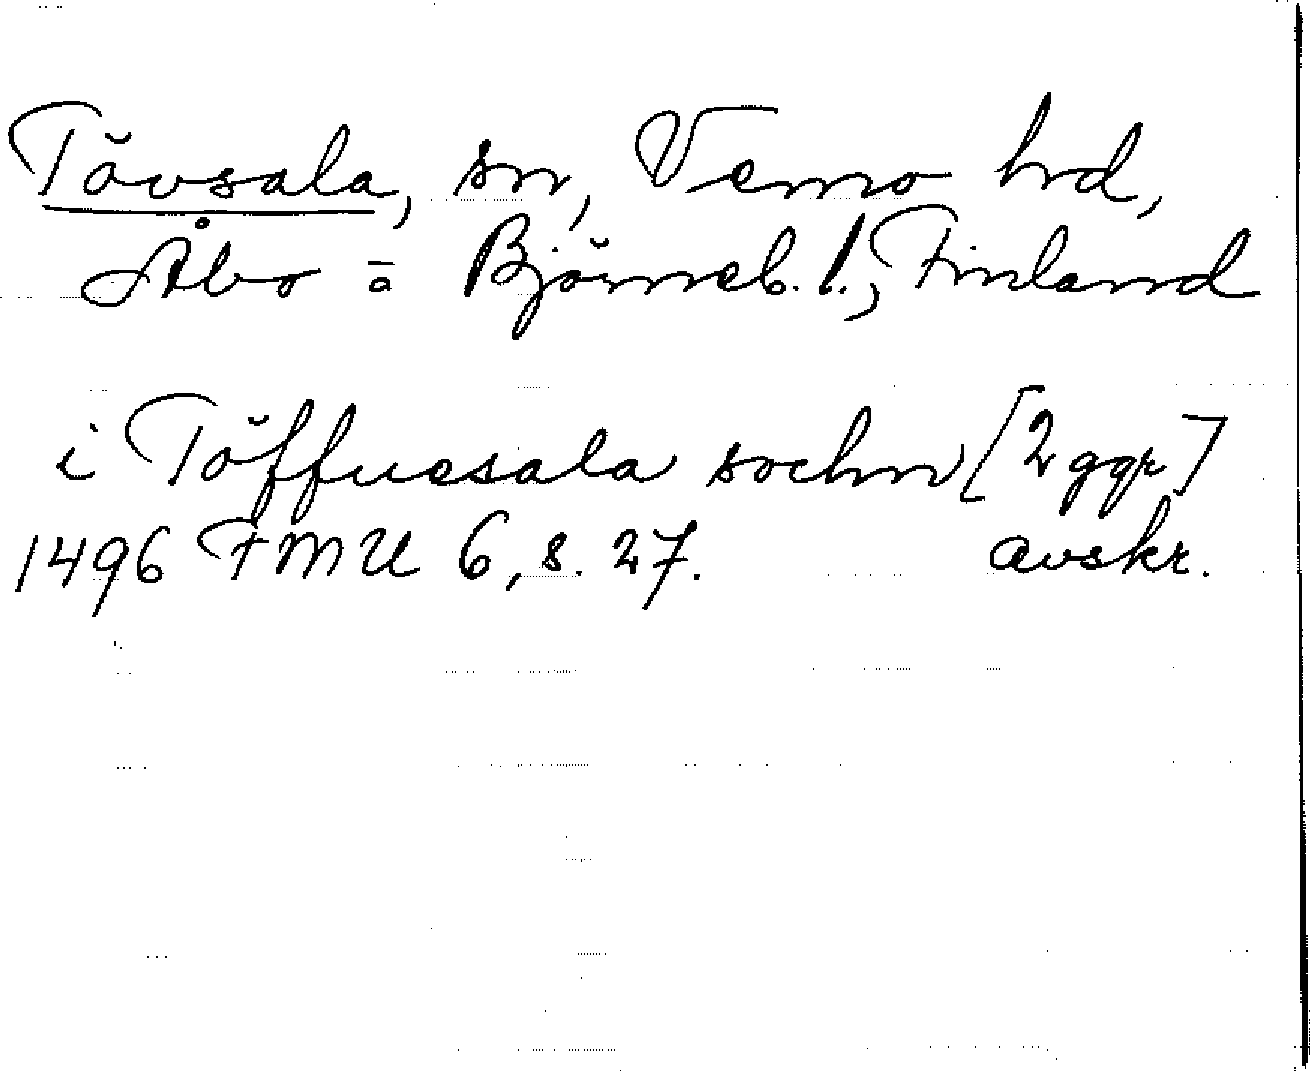 Tövsala, sn, Vemo hrd,
Åbo o Björneb. l., Finland
i Töffuesala sochn [2 ggr]
1496 FMU 6, s. 27. avskr.